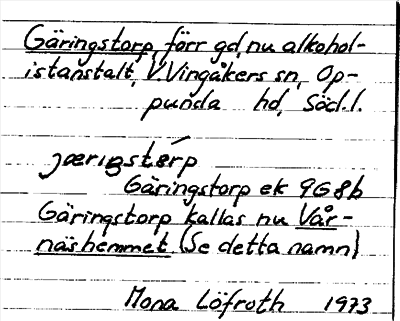 Gäringstorp, förr gd, nu alkohol-
istanstalt, V. Vingåkers sn, Op-
punda hd, Södl.
jæriŋstórp
Gäringstorp ek 9G8b
Gäringstorp kallas nu Vår-
näshemmet (Se detta namn)
Mona Löfroth 1973